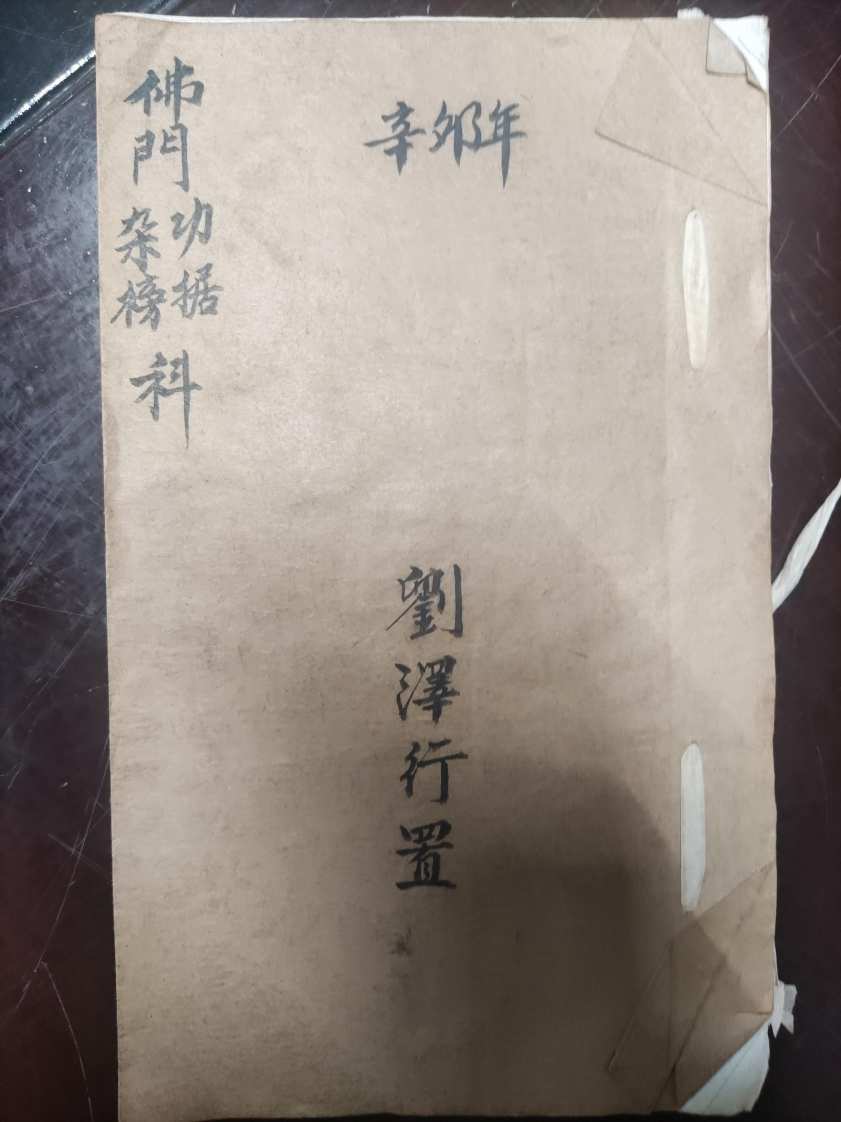 佛門功据杂榜科
辛夘年
劉澤行置